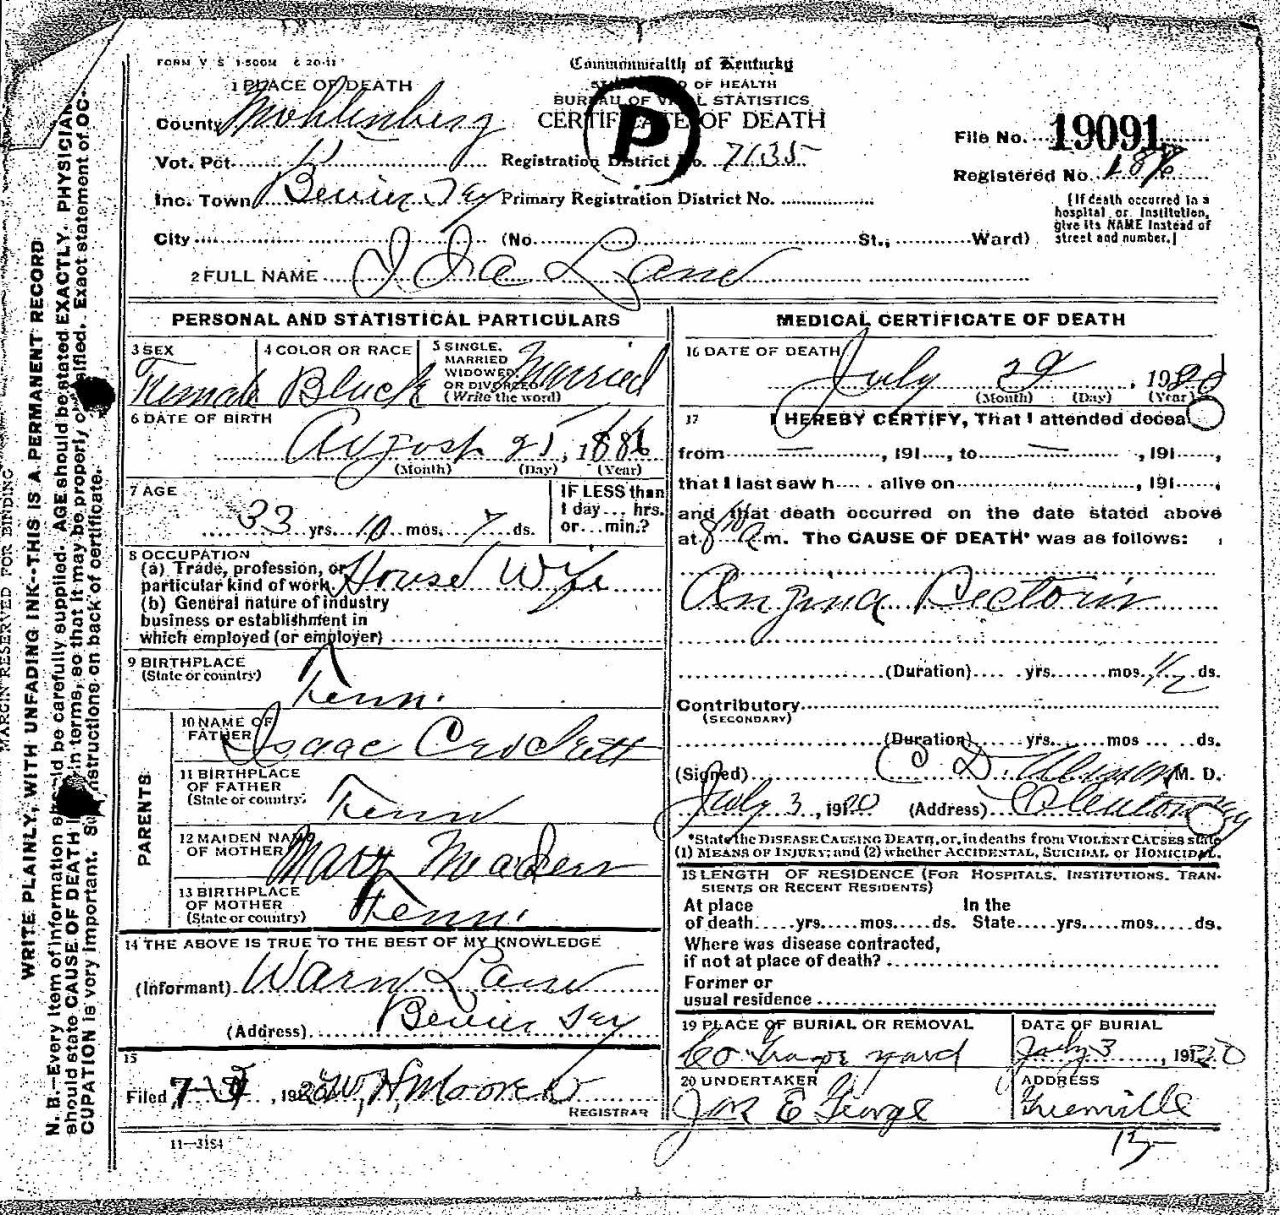 FORM V S 1-500M 6 20-11
Commonwealth of Kentucky
OF HEALTH
BUREAU OF VITAL STATISTICS
CERTIFICATE OF DEATH
P
1 PLACE OF DEATH
County Mohlenberg
Vot. Pct. 11 Registration District No. 7135
File No. 19091
Registered No. 186
Inc. Town Bevier Key Primary Registration District No.
(If death occurred in a
hospital or institution,
give its NAME instead of
street and number.)
City (No. St., Ward)
2 FULL NAME Ida Lane
PERSONAL AND STATISTICAL PARTICULARS
3 SEX Female
4 COLOR OR RACE Black
5 SINGLE,
MARRIED
WIDOWED,
OR DIVORCED
(Write the word) Married
6 DATE OF BIRTH
August 21, 1886
(Month) (Day) (Year)
7 AGE
33 yrs. 10 mos. 7 ds.
IF LESS than
1 day... hrs.
or...min.?
8 OCCUPATION
(a) Trade, profession, or
particular kind of work House Wife
(b) General nature of industry
business or establishment in
which employed (or employer)
9 BIRTHPLACE
(State or country)
Tenn.
PARENTS
10 NAME OF
FATHER Isaac Crockett
11 BIRTHPLACE
OF FATHER
(State or country) Tenn
12 MAIDEN NAME
OF MOTHER Mary
13 BIRTHPLACE
OF MOTHER
(State or country) Tenn.
14 THE ABOVE IS TRUE TO THE BEST OF MY KNOWLEDGE
(Informant) Warn Lane
(Address) Bevier Key
15
Filed 7 , 1920 W, H, Moore
REGISTRAR
11-3184
MEDICAL CERTIFICATE OF DEATH
16 DATE OF DEATH
July 29, 1920
(Month) (Day) (Year)
17 I HEREBY CERTIFY, That I attended decea
from , 191...., to , 191....,
that I last saw h.... alive on , 191....,
and that death occurred on the date stated above
at 8 m. The CAUSE OF DEATH* was as follows:
Angina Pectoris
(Duration) yrs. mos. 1/2 ds.
Contributory
(SECONDARY)
(Duration) yrs. mos ds.
(Signed) C D. M. D.
July 3, 1920 (Address)
*State the DISEASE CAUSING DEATH, or, in deaths from VIOLENT CAUSES state
(1) MEANS OF INJURY; and (2) whether ACCIDENTAL, SUICIDAL or HOMICIDAL.
18 LENGTH OF RESIDENCE (FOR HOSPITALS, INSTITUTIONS, TRAN-
SIENTS OR RECENT RESIDENTS)
At place In the
of death.....yrs.....mos.....ds. State.....yrs.....mos.....ds.
Where was disease contracted,
if not at place of death?
Former or
usual residence
19 PLACE OF BURIAL OR REMOVAL
Co Grave yard
DATE OF BURIAL
July 3, 1920
20 UNDERTAKER
Jas E George
ADDRESS
Greenville
MARGIN RESERVED FOR BINDING
WRITE PLAINLY, WITH UNFADING INK--THIS IS A PERMANENT RECORD
N. B.--Every item of information should be carefully supplied. AGE should be stated EXACTLY. PHYSICIAN
should state CAUSE OF DEATH in terms, so that it may be properly classified. Exact statement of OC-
CUPATION is very important. See instructions on back of certificate.